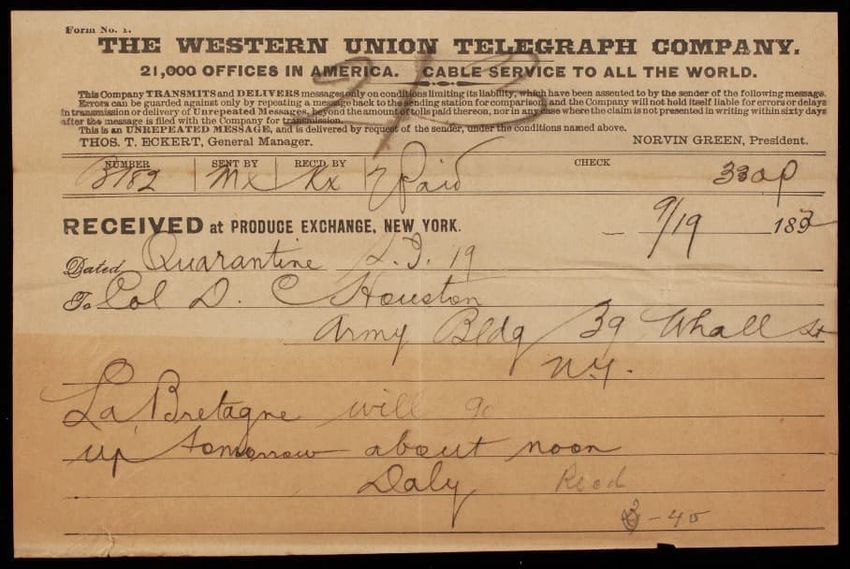 Form No. 1.
THE WESTERN UNION TELEGRAPH COMPANY.
21,000 OFFICES IN AMERICA. CABLE SERVICE TO ALL THE WORLD.
This Company TRANSMITS and DELIVERS messages only on conditions limiting its liability, which have been assented to by the sender of the following message.
Errors can be guarded against only by repeating a message back to the sending station for comparison, and the Company will not hold itself liable for errors or delays
in transmission or delivery of Unrepeated Messages, beyond the amount of tolls paid thereon, nor in any case where the claim is not presented in writing within sixty days
after the message is filed with the Company for transmission.
This is an UNREPEATED MESSAGE, and is delivered by request of the sender, under the conditions named above.
THOS. T. ECKERT, General Manager. NORVIN GREEN, President.
NUMBER SENT BY REC'D BY CHECK
3182 Mx Kx 7 Paid 330p
RECEIVED at PRODUCE EXCHANGE, NEW YORK. 9/19 1892
Dated Quarantine S.I. 19
To Col D. C Houston
Army Bldg 39 Whall St
N.Y.
La Bretagne will go
up tomorrow about noon
Daly Recd
3-45